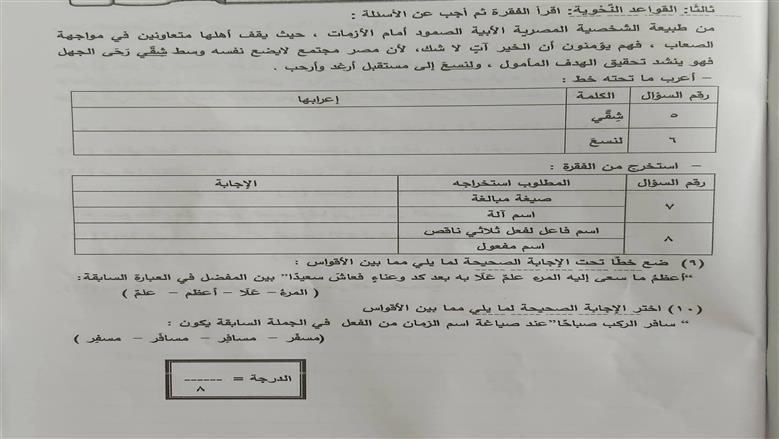 ثالثًا: القواعد النّحوية: اقرأ الفقرة ثم أجب عن الأسئلة :
من طبيعة الشخصية المصرية الأبية الصمود أمام الأزمات ، حيث يقف أهلها متعاونين في مواجهة
الصعاب ، فهم يؤمنون أن الخير آتٍ لا شك، لأن مصر مجتمع لايضع نفسه وسط شِقّي رَحَى الجهل
فهو ينشد تحقيق الهدف المأمول ، ولنسعَ إلى مستقبل أرغد وأرحب .
– أعرب ما تحته خط :
رقم السؤال الكلمة إعرابها
٥ شِقّي
٦ لنسعَ
– استخرج من الفقرة :
رقم السؤال المطلوب استخراجه الإجابة
٧ صيغة مبالغة
اسم آلة
٨ اسم فاعل لفعل ثلاثي ناقص
اسم مفعول
(٩) ضع خطًا تحت الإجابة الصحيحة لما يلي مما بين الأقواس :
“أعظمُ ما سعى إليه المرء علمٌ عَلَا به بعد كد وعناءٍ فعاشَ سعيدًا” بين المفضل في العبارة السابقة:
( المرءُ – عَلَا – أعظم – علمٌ )
(١٠) اختر الإجابة الصحيحة لما يلي مما بين الأقواس
“ سافر الركب صباحًا”عند صياغة اسم الزمان من الفعل في الجملة السابقة يكون :
(مسفَر – مسافِر – مسافَر – مسفِر )
الدرجة = ------
٨